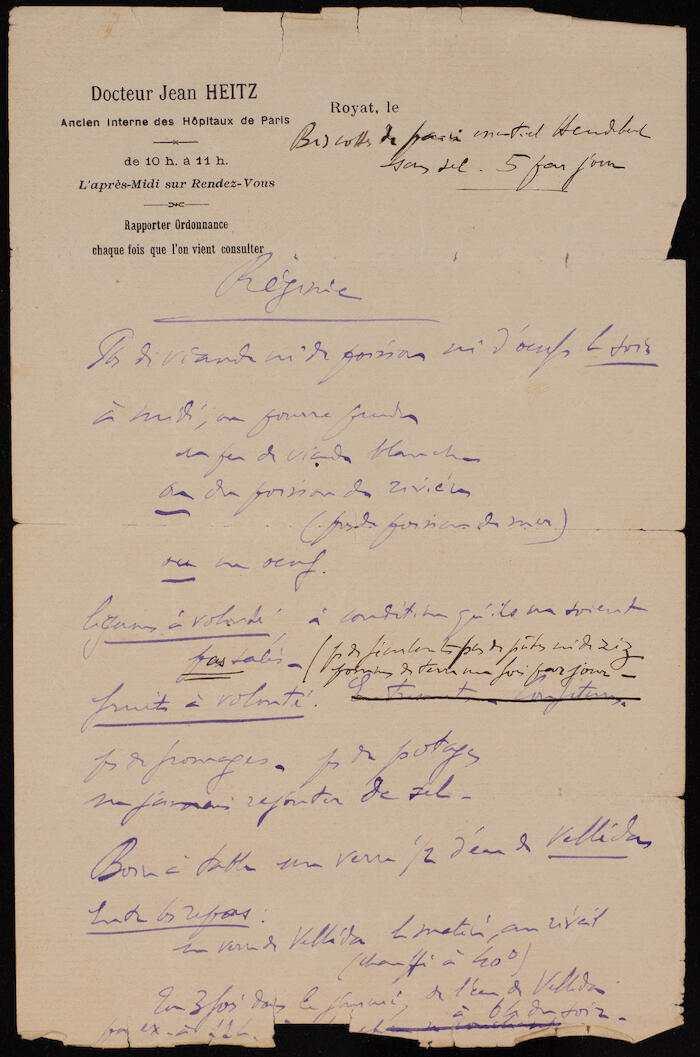 Docteur Jean HEITZ
Ancien Interne des Hôpitaux de Paris
de 10 h. à 11 h.
L'après-Midi sur Rendez-Vous
Rapporter Ordonnance
chaque fois que l'on vient consulter
Royat, le
Biscottes de
sans sel. 5 par jour
Régime
Pas de viande ni de poisson ni d'oeufs le soir
à midi, on pourra prendre
un peu de viande blanche
ou du poisson de rivière
(pas de poisson de mer)
ou un oeuf.
légumes à volonté à condition qu'ils ne soient
pas salés - (pas de féculents pas de pâtes ni de riz
pommes de terre une fois par jour -
fruits à volonté. Entremets - Confitures
pas de fromages - pas de potages
ne jamais rajouter de sel -
Boire à table un verre 1/2 d'eau de Velléda
Entre les repas :
un verre de Velléda le matin, au réveil
(chauffé à 40°)
En 3 fois dans la journée, de l'eau de Velléda
par ex. à 11h à 6h du soir -